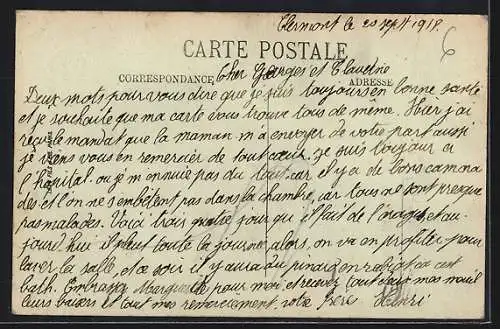 Clermont le 20 sept 1918.
CARTE POSTALE
CORRESPONDANCE Cher Georges et Claudine ADRESSE
Deux mots pour vous dire que je suis toujours en bonne santé
et je souhaite que ma carte vous trouve tous de même. Hier j'ai
reçu le mandat que la maman m'a envoyer de votre part aussi
je viens vous en remercier de tout cœur. je suis toujour a
l'hopital. ou je m'ennuie pas du tout car il y a de bons camara
des et l'on ne s'embêtent pas dans la chambre, car tous ne sont presque
pas malades. Voici trois quatre jours qu'il fait de l'orage et au
jourd'hui il pleut toute la journée alors, on va en profiter pour
laver la salle, et ce soir il y aura du pinard en rabiot ça c'est
bath. Embrassez Marguerite pour moi et recevez tout deux mes meil
leurs baisers et tout mes remerciement. votre frère Henri